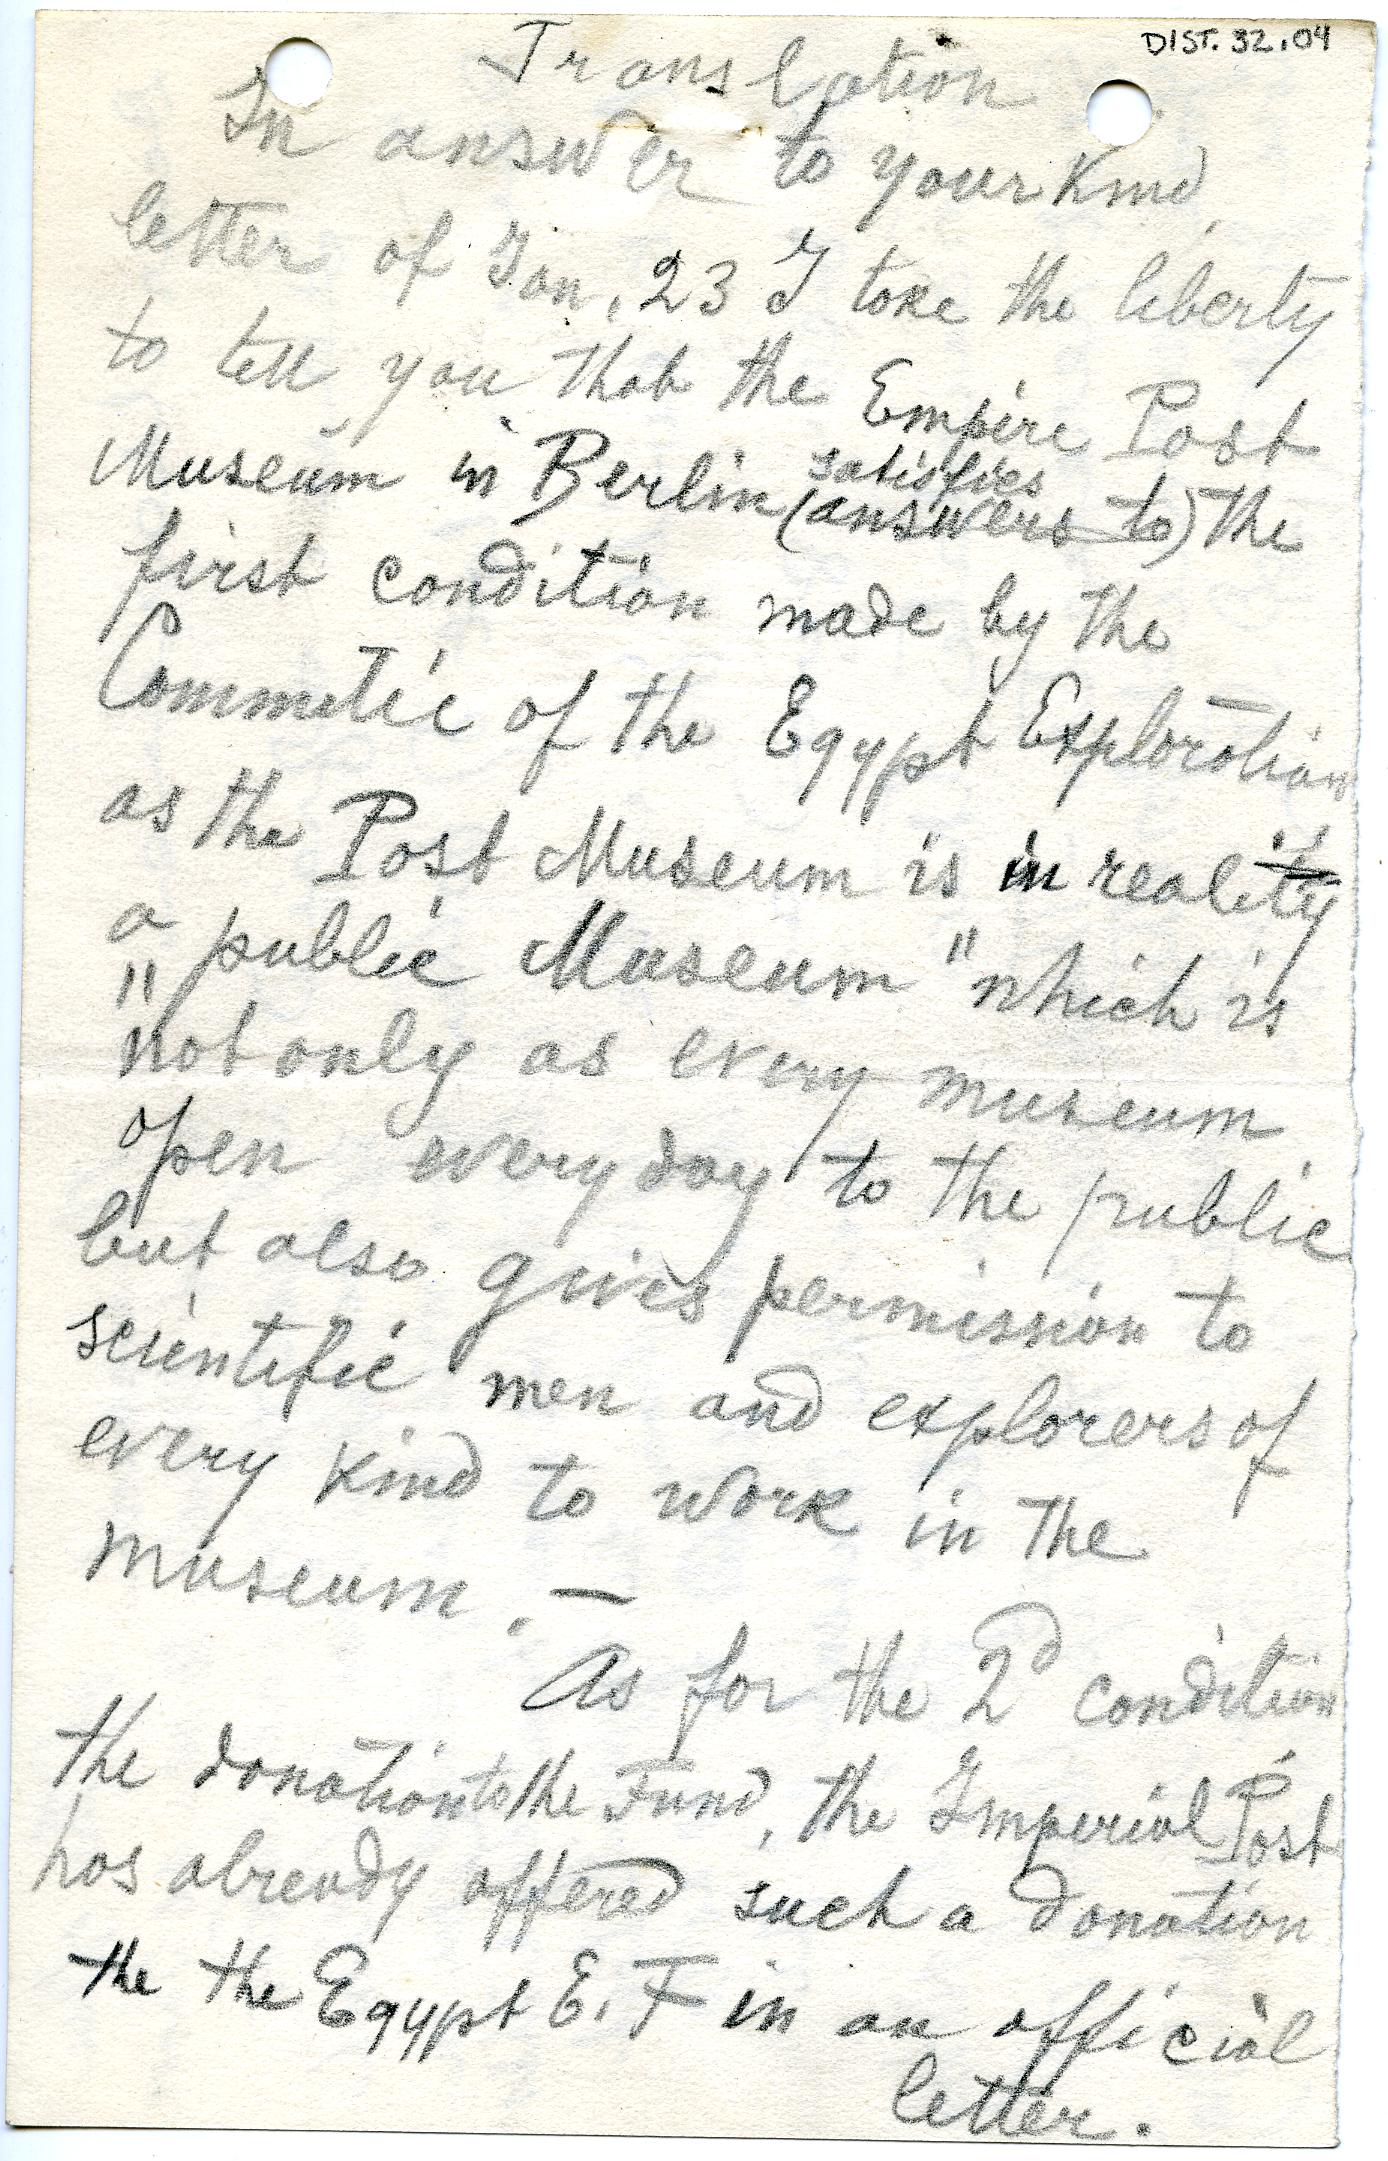 DIST. 32.04
Translation
In answer to your Kind
letter of Jan. 23 I take the liberty
to tell you that the Empire Post
Museum in Berlin satisfies (answers to) the
first condition made by the
Committie of the Egypt Exploration
as the Post Museum is in reality
a "public Museum" which is
not only as every museum
open everyday to the public
but also gives permission to
scientific men and explorers of
every kind to work in the
museum. —
As for the 2d condition
the donation to the Fund, the Imperial Post
has already offered such a donation
the the Egypt E. F in an official
letter.